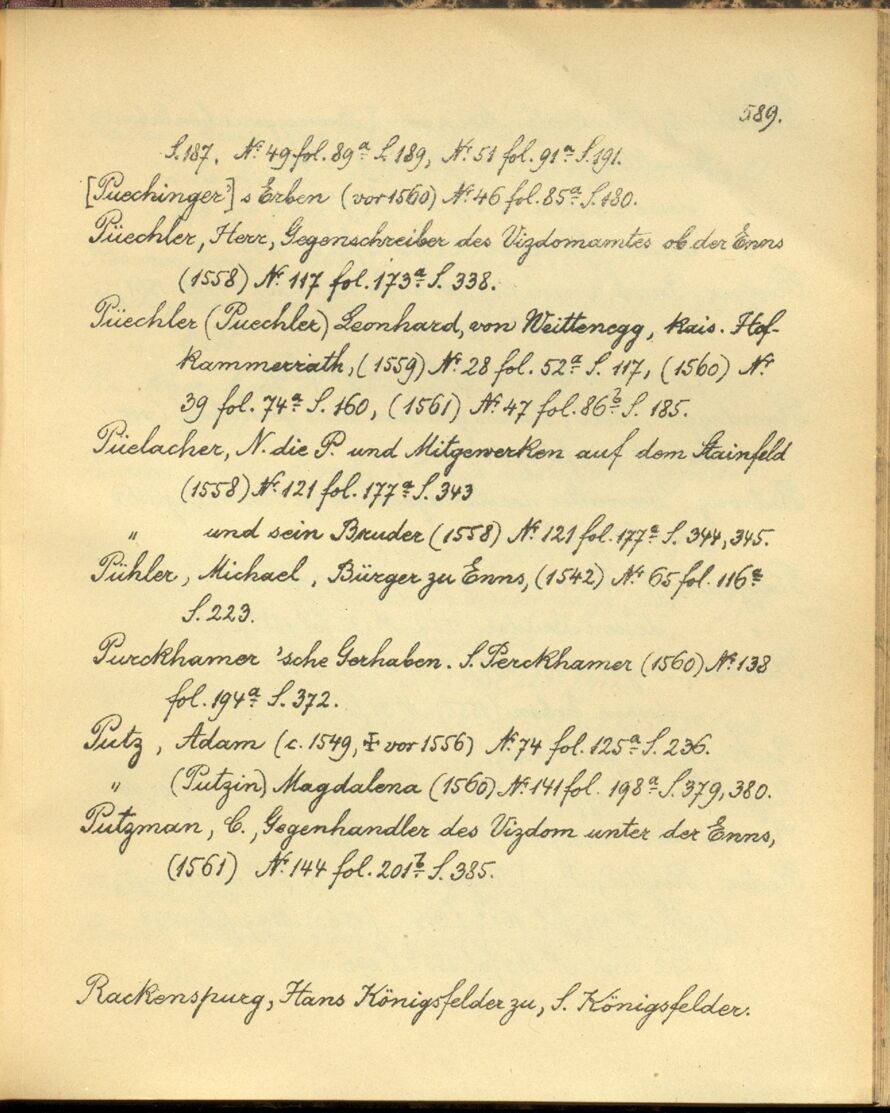 589.
S. 187, No 49 fol. 89a S. 189, No 51 fol. 91a S. 191.
[Puechinger'] s Erben (vor 1560) No 46 fol. 85a S. 180.
Püechler, Herr, Gegenschreiber des Vizdomamtes ob der Enns
(1558) No 117 fol. 173a S. 338.
Püechler (Puechler) Leonhard, von Weittenegg, kais. Hof-
kammerrath, (1559) No 28 fol. 52a S. 117, (1560) No
39 fol. 74a S. 160, (1561) No 47 fol. 86b S. 185.
Püelacher, N. die P. und Mitgewerken auf dem Stainfeld
(1558) No 121 fol. 177a S. 343
" und sein Bruder (1558) No 121 fol. 177a S. 344, 345.
Pühler, Michael, Bürger zu Enns, (1542) No 65 fol. 116a
S. 223.
Purckhamer 'sche Gerhaben. S. Perckhamer (1560) No 138
fol. 194a S. 372.
Putz, Adam (c. 1549, ‡ vor 1556) No 74 fol. 125a S. 236.
" (Putzin) Magdalena (1560) No 141 fol. 198a S. 379, 380.
Putzman, C., Gegenhandler des Vizdom unter der Enns,
(1561) No 144 fol. 201b S. 385.
Rackenspurg, Hans Königsfelder zu, S. Königsfelder.